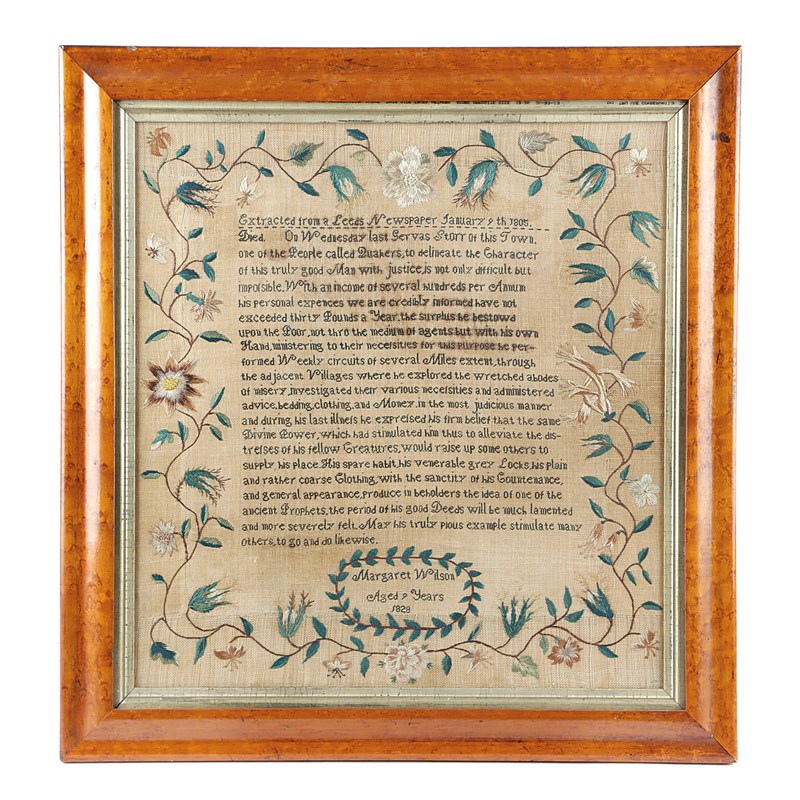 Extracted from a Leeds Newspaper January 9th 1805.
Died. On Wednesday last Gervas Storr of this Town,
one of the People called Quakers, to delineate the Character
of this truly good Man with justice, is not only difficult but
impoſsible, With an income of several hundreds per Annum
his personal expences we are credibly informed have not
exceeded thirty Pounds a Year, the surplus he bestow'd
upon the Poor, not thro the medium of agents but with his own
Hand, ministering to their neceſsities for this purpose he per-
formed Weekly circuits of several Miles extent, through
the adjacent Villages where he explored the wretched abodes
of misery, investigated their various neceſsities and administered
advice, bedding, clothing, and Money, in the most judicious manner
and during his last illneſs he expreſsed his firm belief that the same
Divine Power, which had stimulated him thus to alleviate the dis-
treſses of his fellow Creatures, would raise up some others to
supply his place. His spare habit, his venerable grey Locks, his plain
and rather coarse Clothing, with the sanctity of his Countenance,
and general appearance, produce in beholders the idea of one of the
ancient Prophets, the period of his good Deeds will be much lamented
and more severely felt. May his truly pious example stimulate many
others, to go and do likewise.
Margaret Wilson
Aged 9 Years
1828